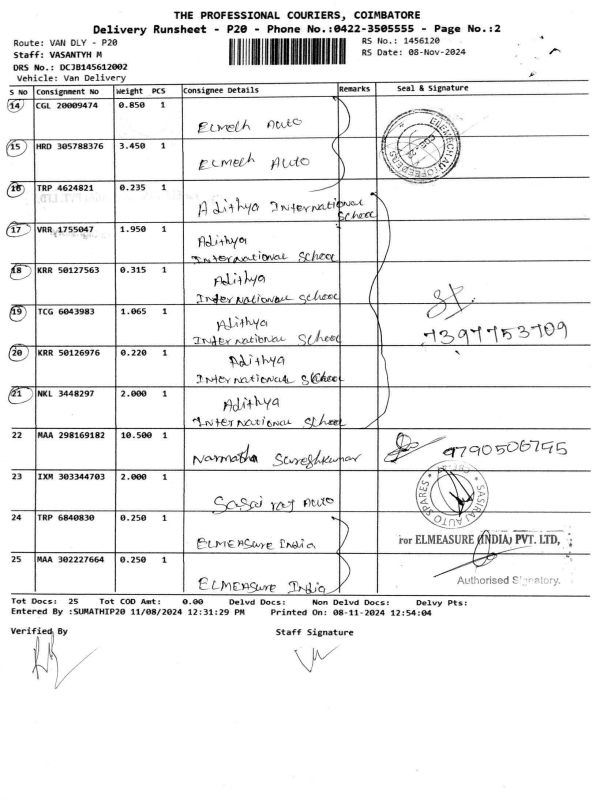 THE PROFESSIONAL COURIERS, COIMBATORE
Delivery Runsheet - P20 - Phone No.:0422-3505555 - Page No.:2
Route: VAN DLY - P20
RS No.: 1456120
Staff: VASANTYH M
RS Date: 08-Nov-2024
DRS No.: DCJB145612002
Vehicle: Van Delivery
S No Consignment No Weight PCS Consignee Details Remarks Seal & Signature
14 CGL 20009474 0.850 1
Elmech Auto
15 HRD 305788376 3.450 1
Elmech Auto
16 TRP 4624821 0.235 1
Adithya International School
17 VRR 1755047 1.950 1
Adithya
International School
18 KRR 50127563 0.315 1
Adithya
International School
19 TCG 6043983 1.065 1
Adithya
International School
7397753709
20 KRR 50126976 0.220 1
Adithya
International School
21 NKL 3448297 2.000 1
Adithya
International School
22 MAA 298169182 10.500 1
Narmatha Sureshkumar
9790506795
23 IXM 303344703 2.000 1
Sasai raj Auto
SASIRAJ AUTO SPARES
24 TRP 6840830 0.250 1
ELMEASURE India
for ELMEASURE (INDIA) PVT. LTD,
25 MAA 302227664 0.250 1
ELMEASURE India
Authorised Signatory.
Tot Docs: 25 Tot COD Amt: 0.00 Delvd Docs: Non Delvd Docs: Delvy Pts:
Entered By :SUMATHIP20 11/08/2024 12:31:29 PM Printed On: 08-11-2024 12:54:04
Verified By Staff Signature